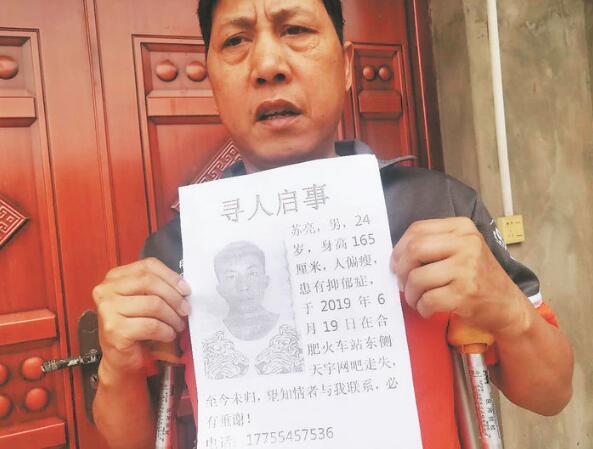 寻人启事
苏亮，男，24
岁，身高165
厘米，人偏瘦，
患有抑郁症，
于2019年6
月19日在合
肥火车站东侧
天宇网吧走失，
至今未归，望知情者与我联系，必
有重谢！
电话：17755457536